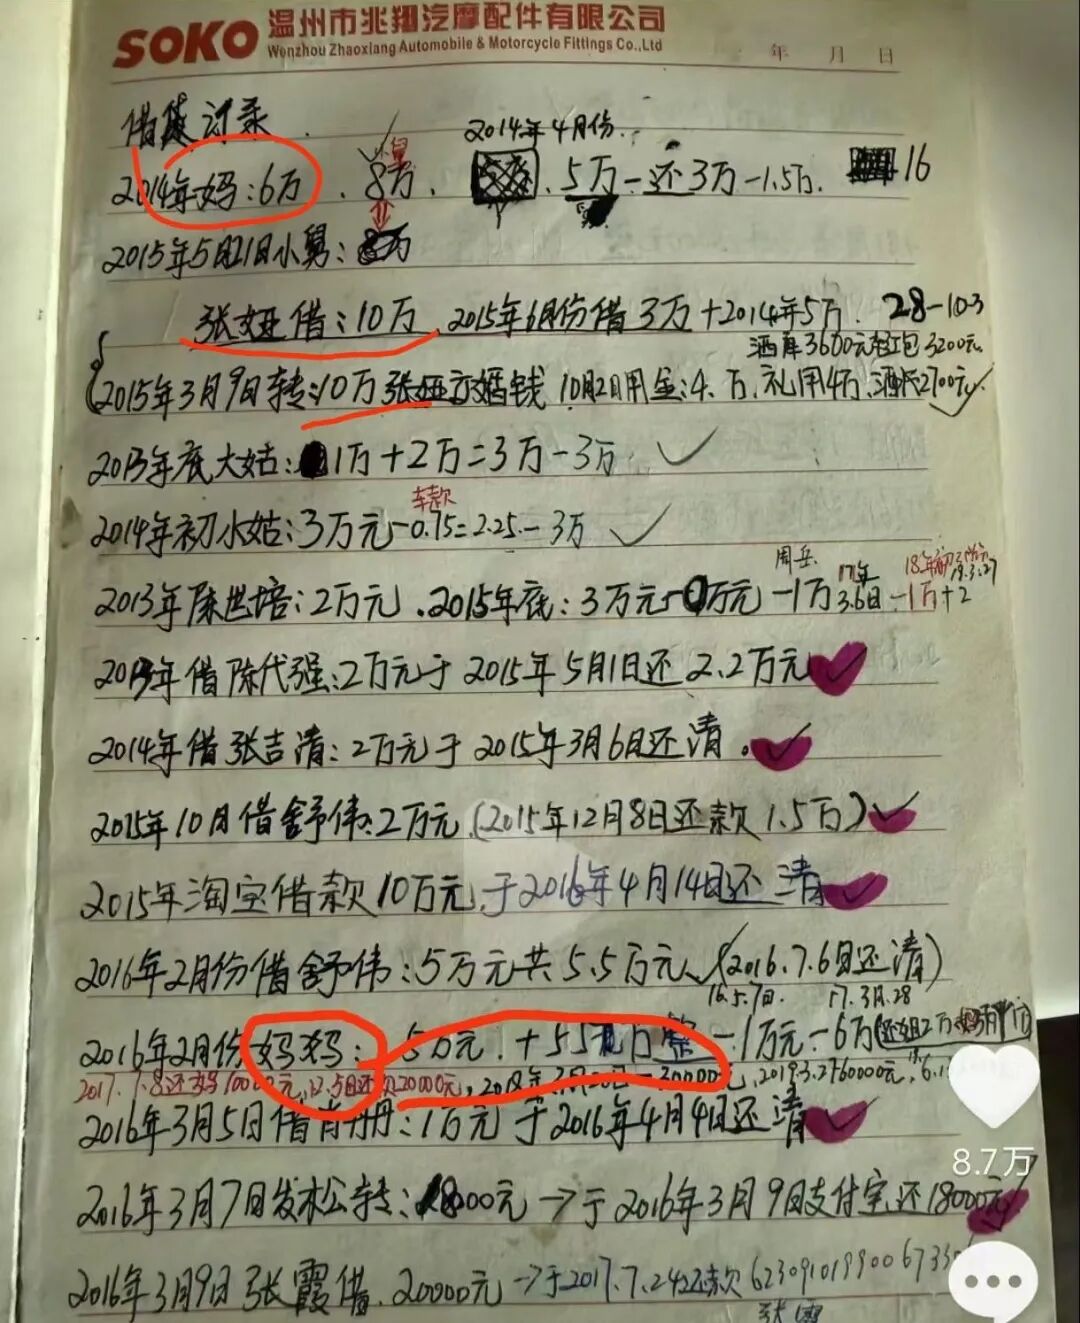 SOKO 温州市兆翔汽摩配件有限公司
Wenzhou Zhaoxiang Automobile & Motorcycle Fittings Co.,Ltd
年 月 日
借
2014年4月份.
小舅
2014年妈:6万、8万、5万-还3万-1.5万. 16
2015年5月21日小舅:
张娅借:10万 2015年6月份借3万+2014年5万. 28-10-3
酒席3600元 红包3200元
2015年3月9日转:10万张娅 婚钱 10月2日用金:4.万、礼用4万、 2700元
2013年底大姑:1万+2万=3万-3万
车款
2014年初小姑:3万元-0.75=2.25.-3万
周岳 17年 19.3.27
2013年陈世培:2万元、2015年底:3万元- 万元-1万 3.6日 -1万+2
2013年借陈代强:2万元于2015年5月1日还2.2万元
2014年借张吉清:2万元于2015年3月6日还清.
2015年10月借舒伟:2万元(2015年12月8日还款1.5万)
2015年淘宝借款10万元,于2016年4月14日还清
2016年2月份借舒伟:5万元共5.5万元、(2016.7.6日还清)
16.5.7日. 17.3月.28
2016年2月份妈妈: 5万元.+5.5 万整-1万元-6万(还姐2万
2017.7.8还妈10000元,12.5日还款20000元,2018年3月20日-30000元,2019.3.27 60000元,
2016年3月5日借肖丹:1万元于2016年4月4日还清
2016年3月7日 转:18000元→于2016年3月9日支付宝还18000元
2016年3月9日张霞借.20000元→于2017.7.24还款 6230910199006733
张霞
8.7万